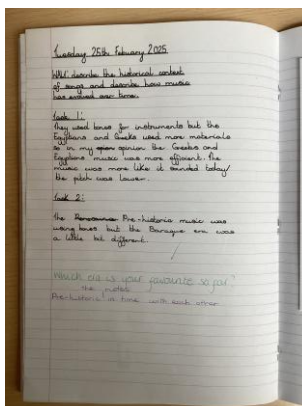 Tuesday 25th Febuary 2025
WALT: describe the historical context
of songs and describe how music
has evolved over time.
Task 1:
They used bones for instruments but the
Egyptians and Geeks used more materials
so in my opinion the Geeks and
Egyptians music was more efficient. The
music was more like it sounded today/
the pitch was lower.
Task 2:
the Pre-historic music was
using bones but the Baroque era was
a little bit different.
Which era is your favourite so far?
the notes
Pre-historic in tune with each other